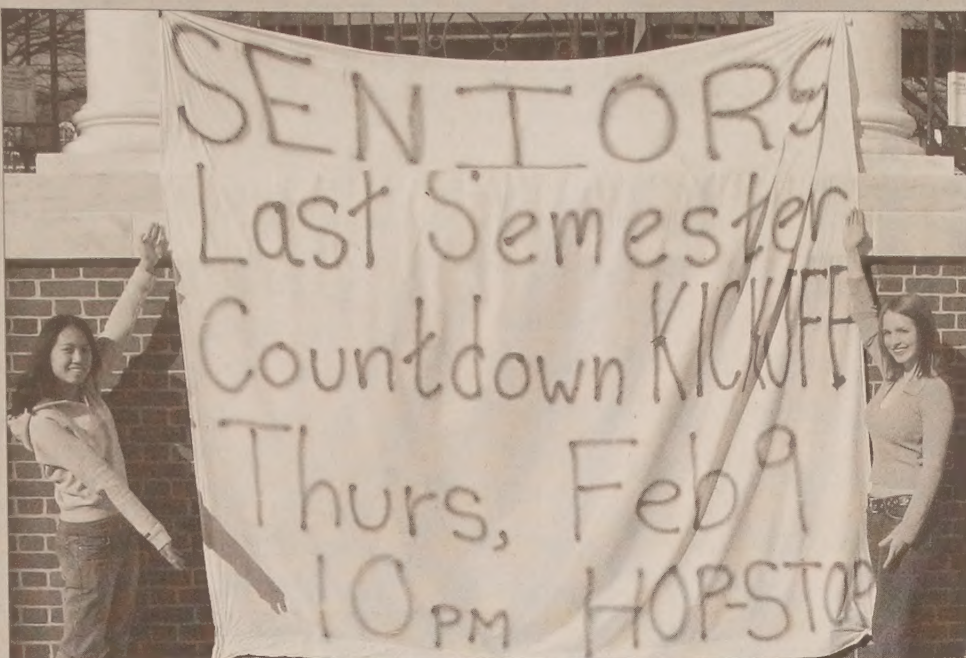 SENIORS
Last Semester
Countdown KICKOFF
Thurs, Feb 9
10 PM HOP-STOP